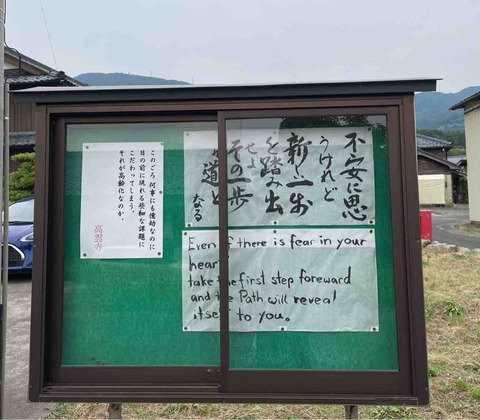 不安に思
うけれど
新しい一歩
を踏み出
せよ
その一歩
が道と
なる。
Even if there is fear in your
heart
take the first step foreward
and the Path will reveal
itself to you.
このごろ 何事にも億劫なのに
目の前に現れる些細な課題に
こだわってしまう。
それが高齢化なのか。
高雲寺